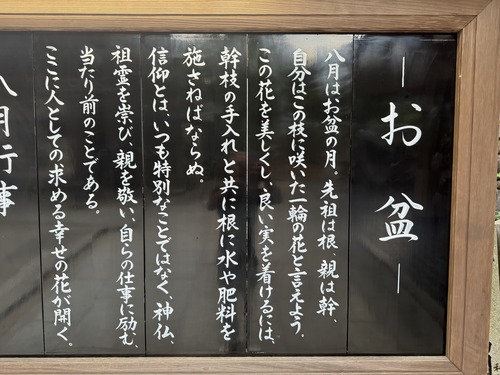 ―お盆―
八月はお盆の月。先祖は根、親は幹、
自分はこの枝に咲いた一輪の花と言えよう。
この花を美しくし、良い実を着けるには、
幹枝の手入れと共に根に水や肥料を
施さねばならぬ。
信仰とは、いつも特別なことではなく、神仏、
祖霊を崇び、親を敬い、自らの仕事に励む、
当たり前のことである。
ここに人としての求める幸せの花が開く。
八月行事